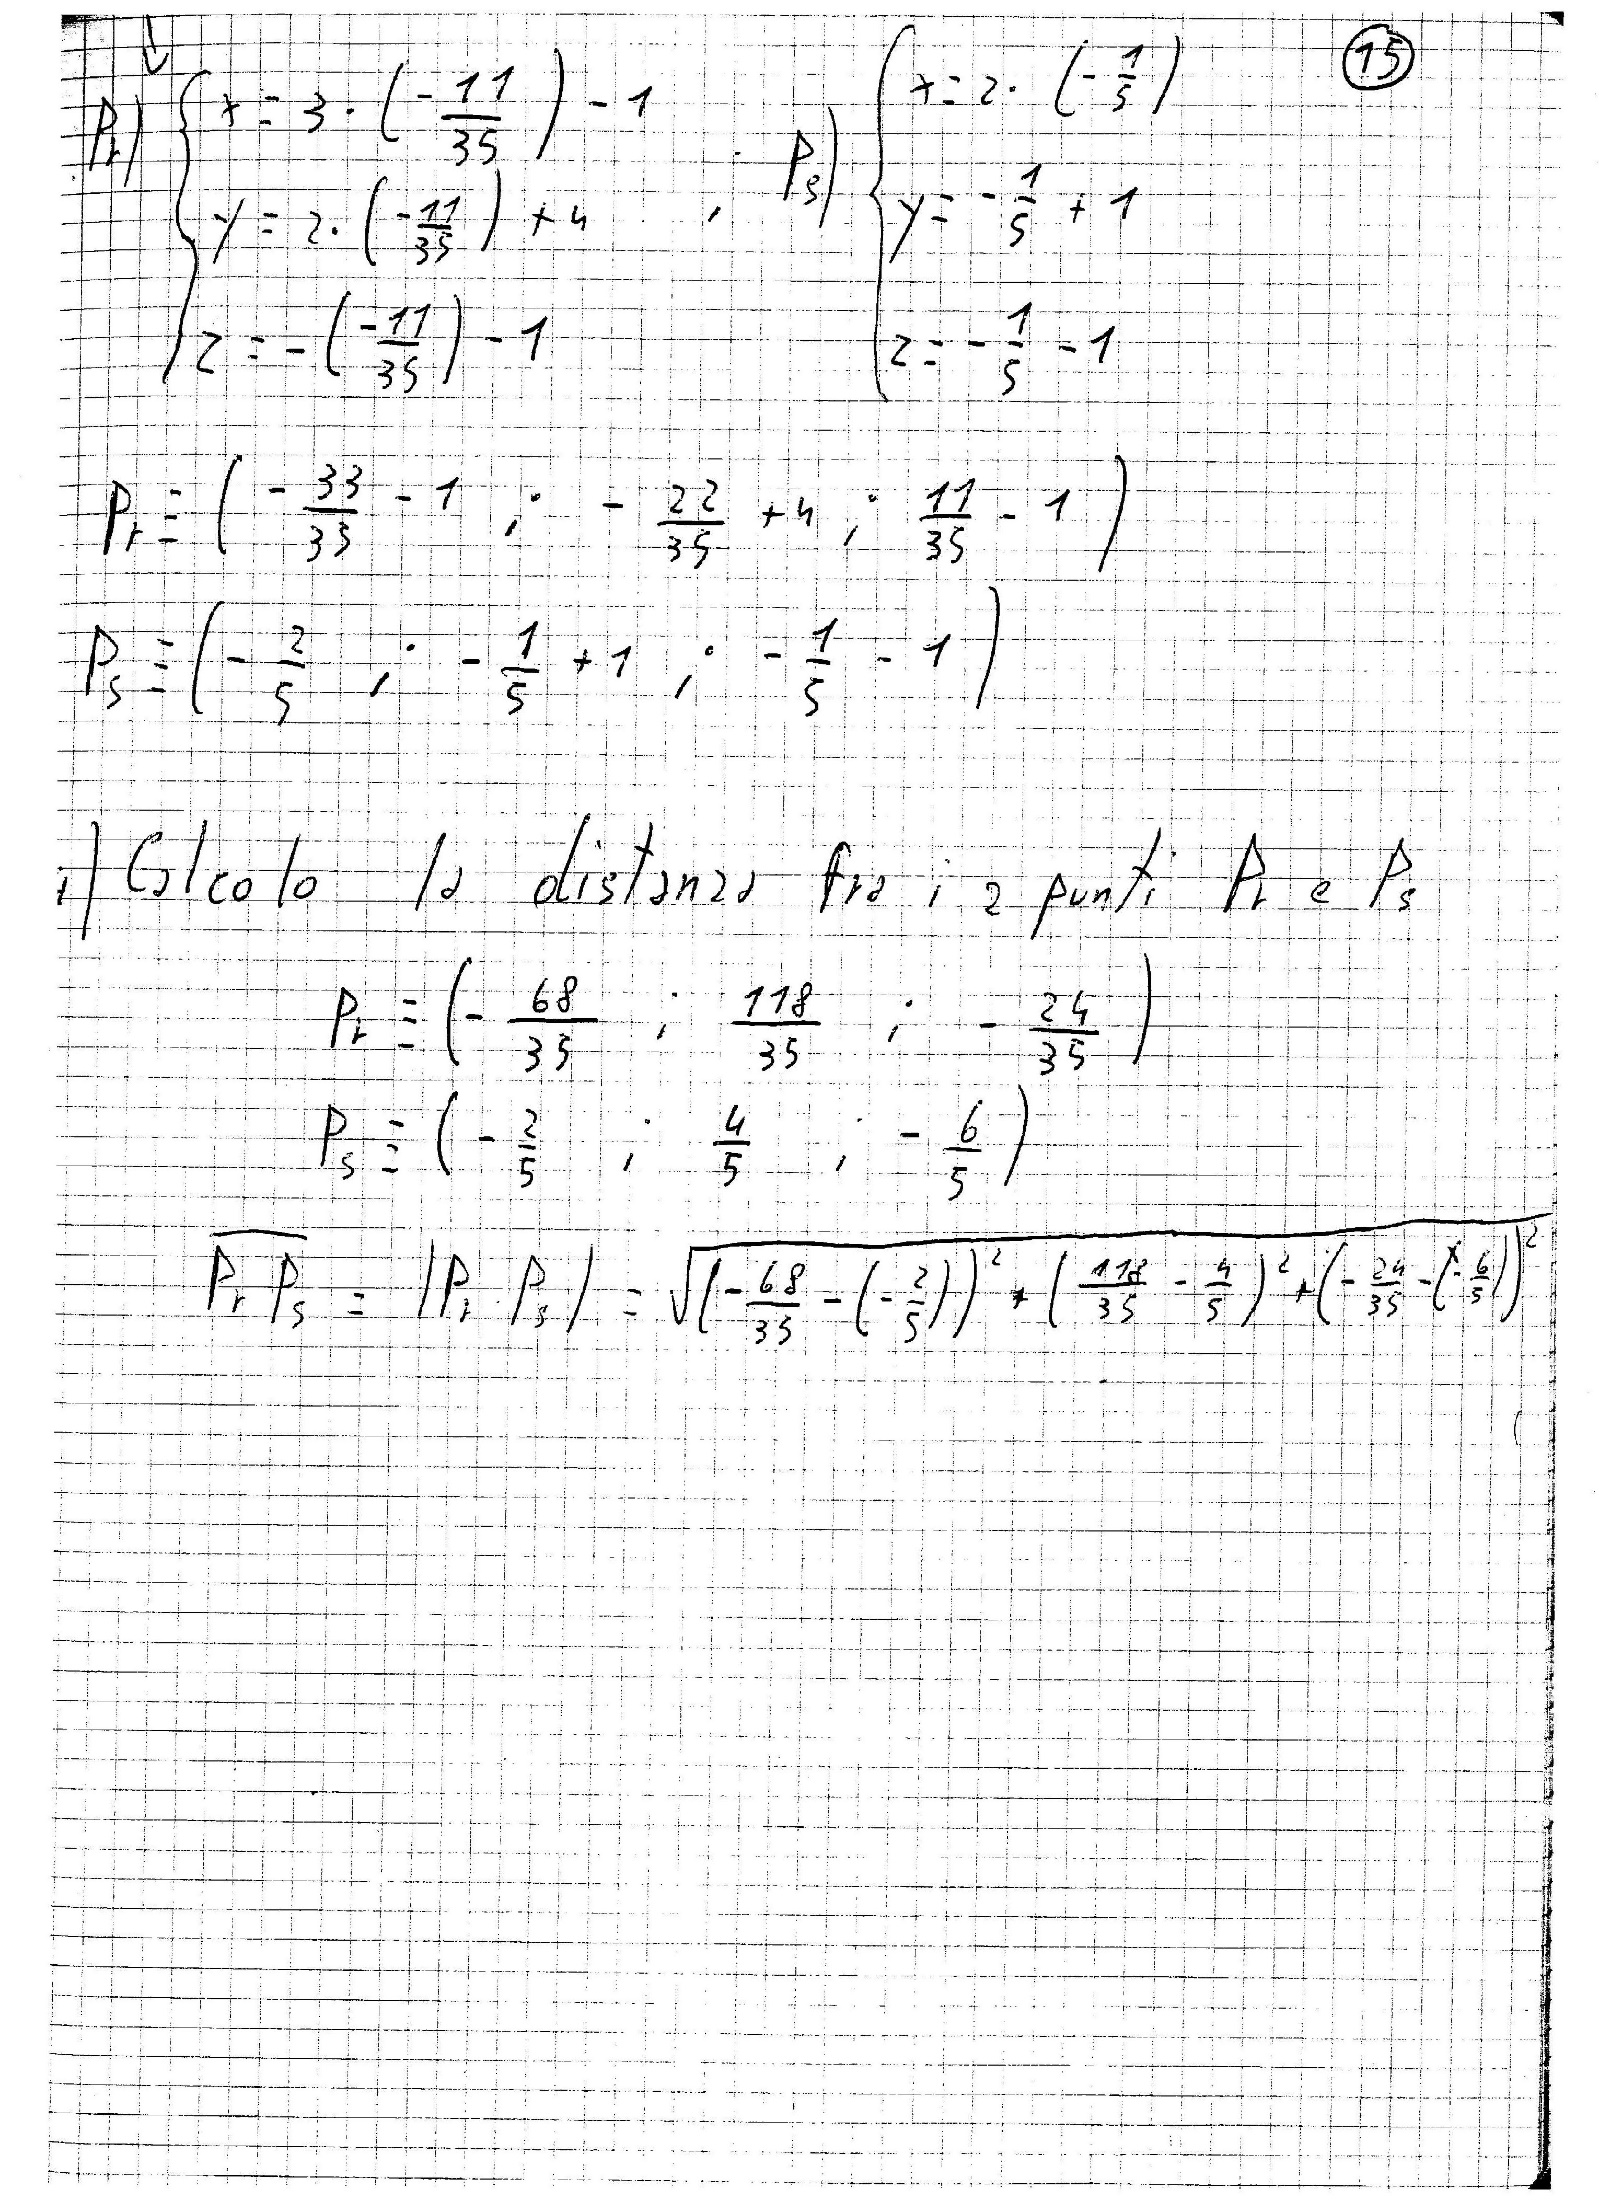 15
Pr) { x = 3 · (-11/35) - 1 ; Ps) { x = 2 · (-1/5)
y = 2 · (-11/35) + 4 y = -1/5 + 1
z = -(-11/35) - 1 z = -1/5 - 1
Pr ≡ (-33/35 - 1 ; -22/35 + 4 ; 11/35 - 1)
Ps ≡ (-2/5 ; -1/5 + 1 ; -1/5 - 1)
i) Calcolo la distanza fra i 2 punti Pr e Ps
Pr ≡ (-68/35 ; 118/35 ; -24/35)
Ps ≡ (-2/5 ; 4/5 ; -6/5)
PrPs = |Pr Ps| = √((-68/35 - (-2/5))² + (118/35 - 4/5)² + (-24/35 - (-6/5))²)